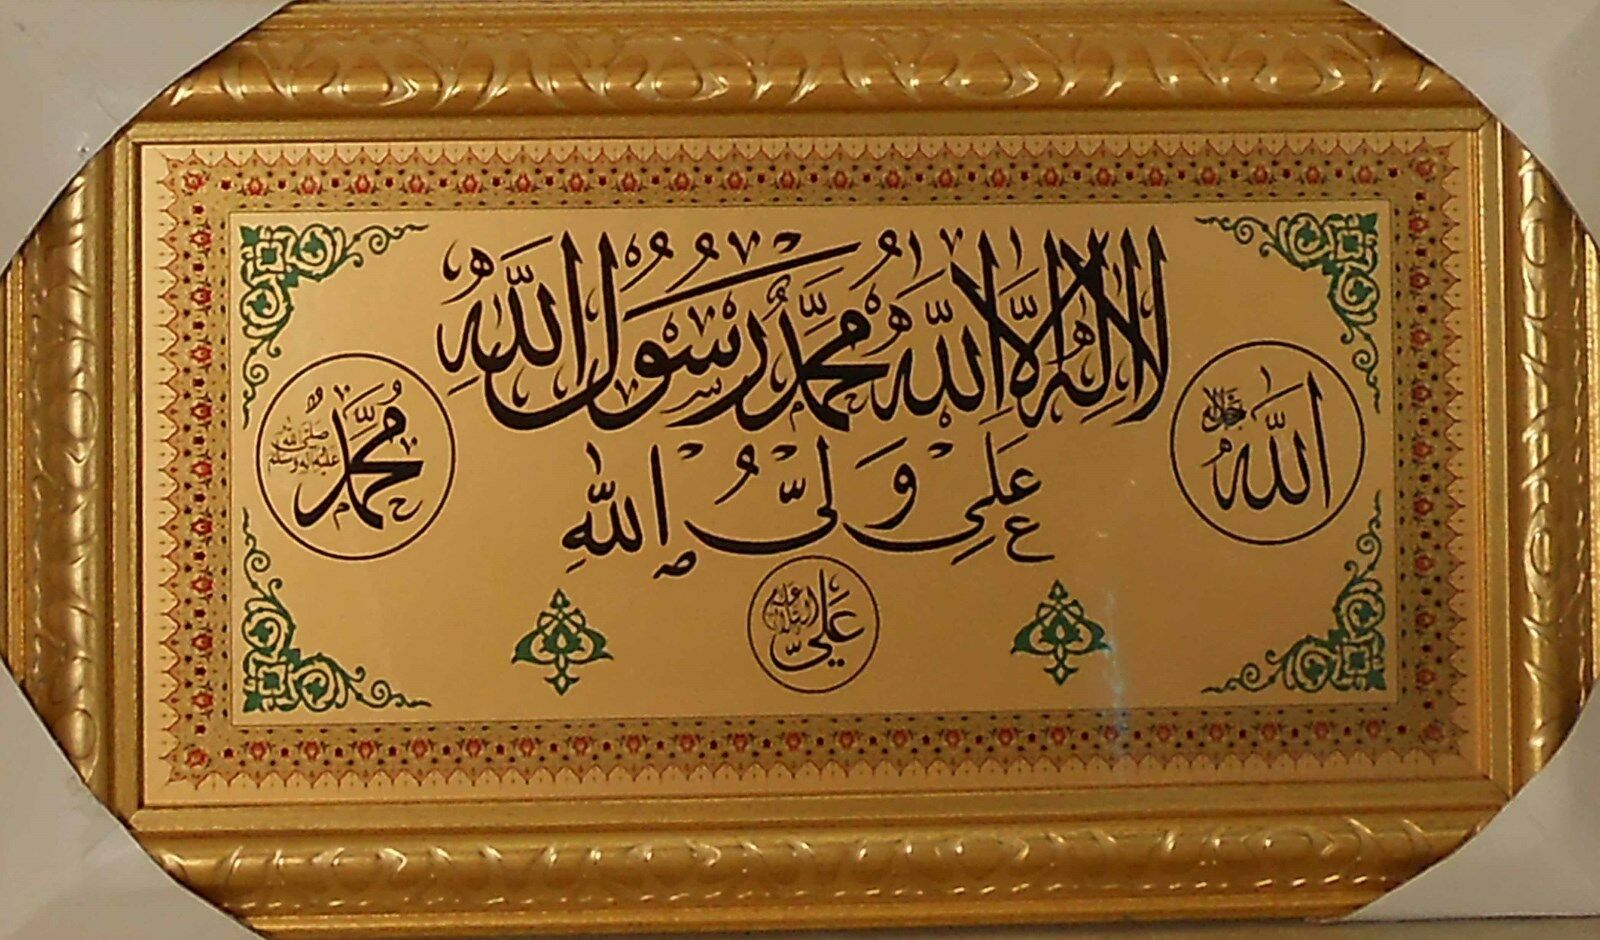 لَا إِلٰهَ إِلَّا اللّٰهُ مُحَمَّدٌ رَسُولُ اللّٰهِ
عَلِي وَلِيُّ اللّٰهِ
اللّٰهُ جل جلاله
مُحَمَّدٌ صلى الله عليه وآله وسلم
عَلِيّ عليه السلام